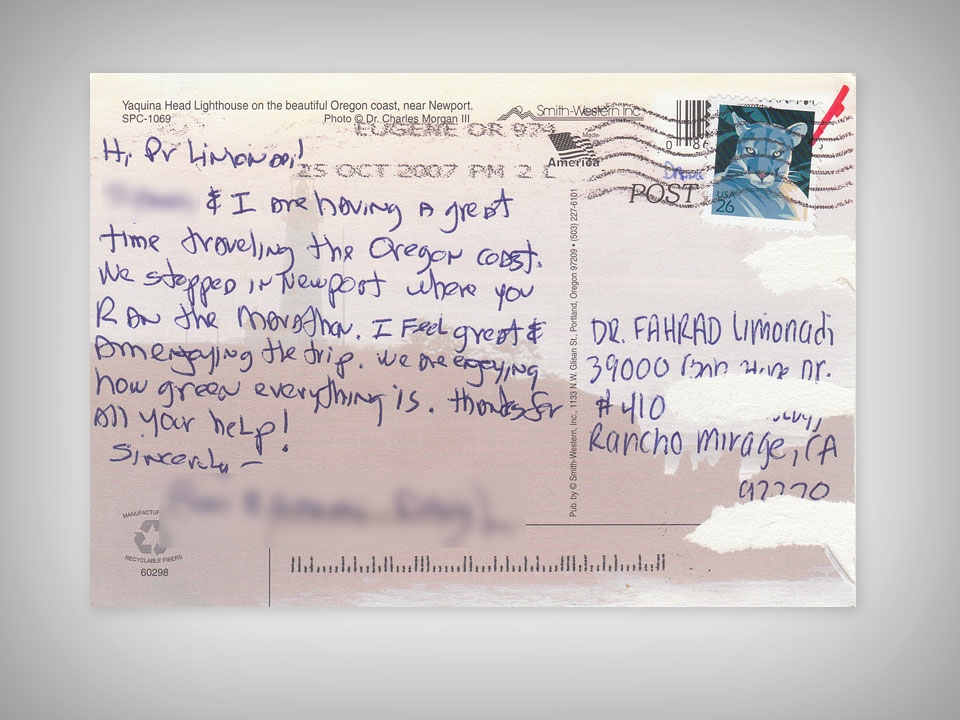 Yaquina Head Lighthouse on the beautiful Oregon coast, near Newport.
SPC-1069
Photo © Dr. Charles Morgan III
Smith-Western Inc.
EUGENE OR 974
25 OCT 2007 PM 2 L
Made
America
0 86
POST
USA
26
Hi, Dr Limonadi!
& I are having a great
time traveling the Oregon coast.
We stopped in Newport where you
Ran the marathon. I feel great &
am enjoying the trip. We are enjoying
how green everything is. thanks for
all your help!
Sincerely –
Pub. by © Smith-Western, Inc., 1133 N.W. Glisan St. Portland, Oregon 97209 • (503) 227-6101
DR. FAHRAD Limonadi
39000 Dr.
#410
Rancho Mirage, CA
RECYCLABLE FIBERS
60298